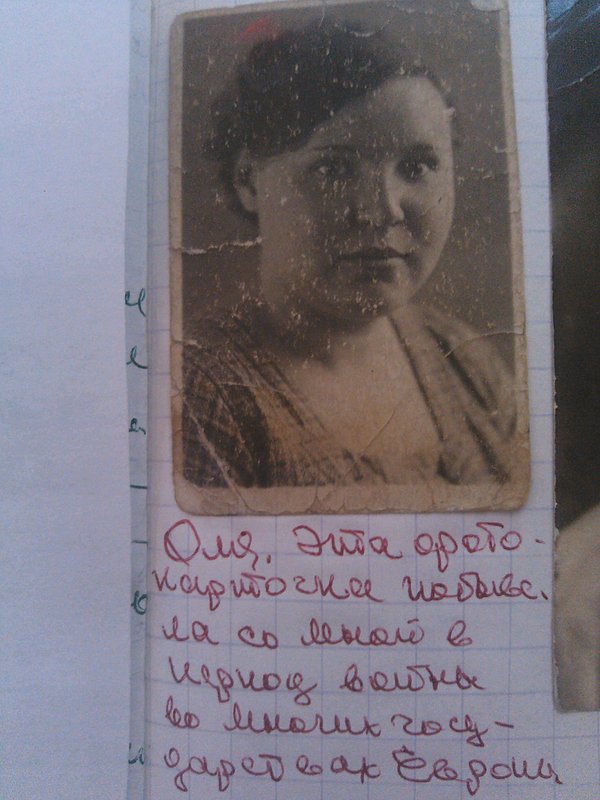 Оля. Эта фото-
карточка побыва-
ла со мной в
период войны
во многих госу-
дарствах Европы